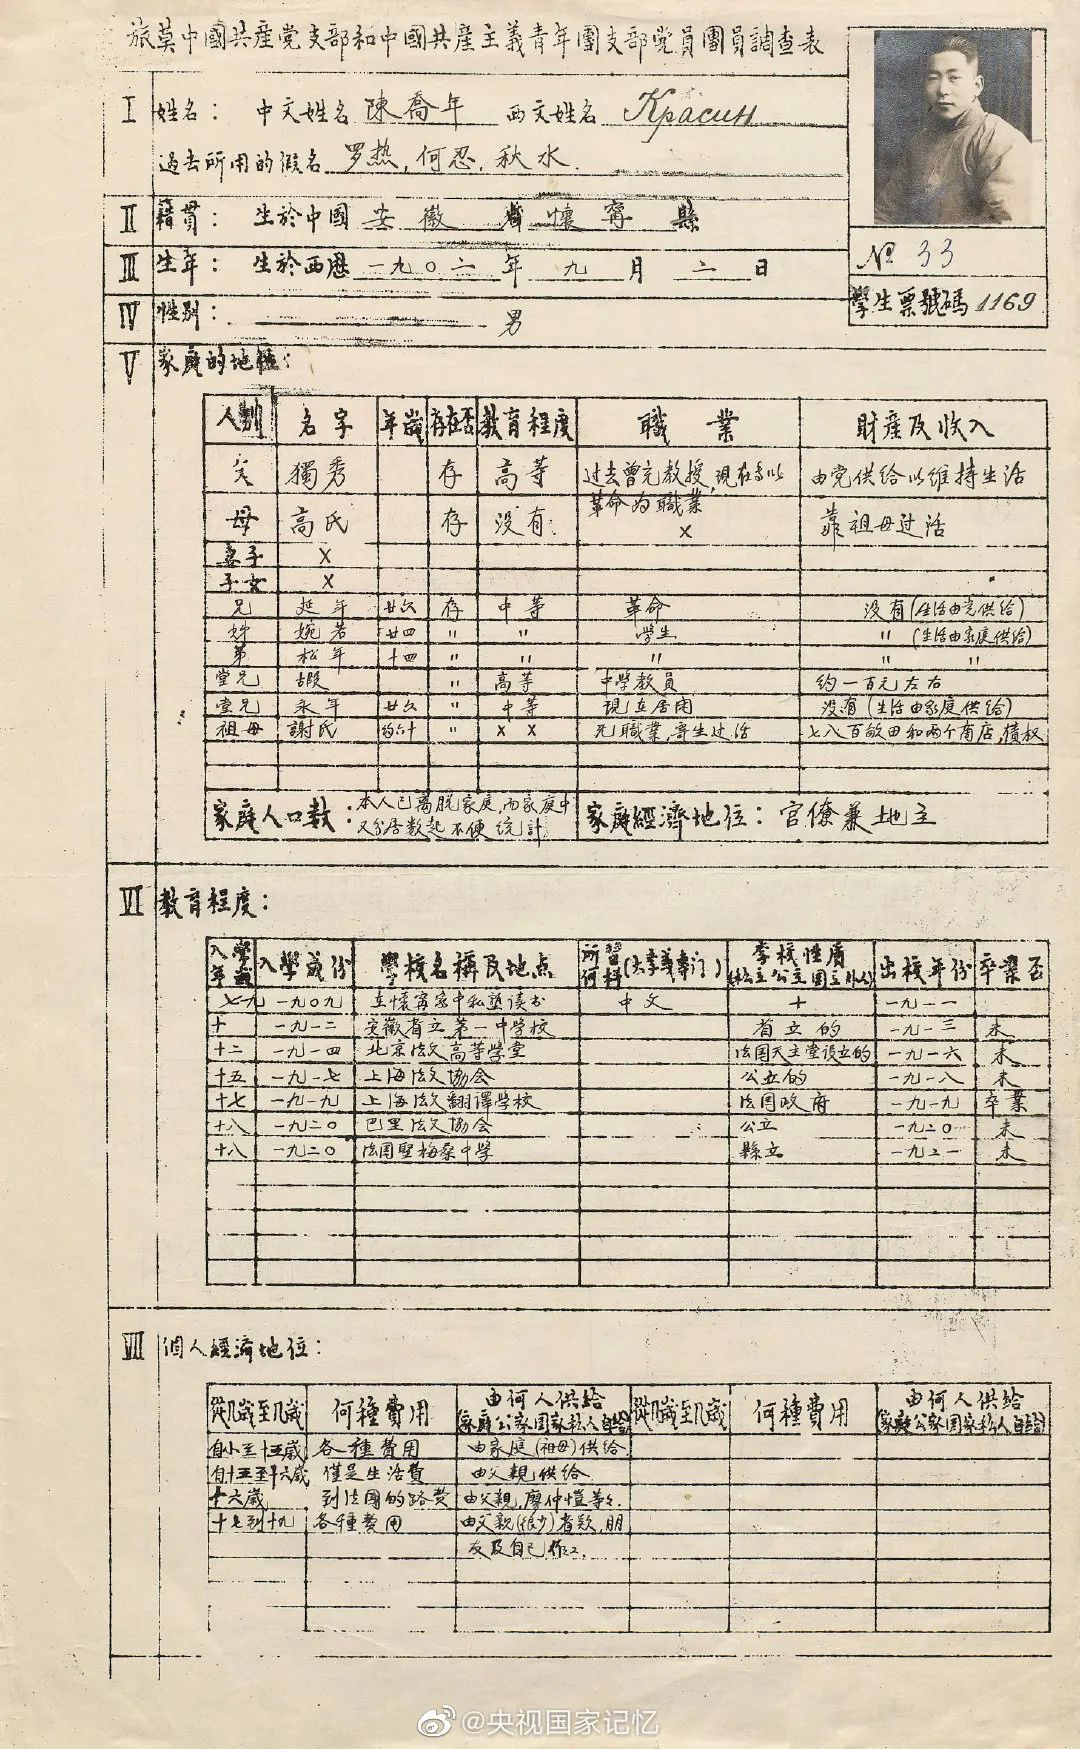 旅莫中國共産党支部和中國共産主義青年團支部党員團員調查表
I 姓名： 中文姓名 陳喬年 西文姓名 Красин
過去所用的假名 罗热, 何忍, 秋水.
II 籍貫： 生於中國 安徽 省 懷寧 縣
III 生年： 生於西歷 一九〇二 年 九 月 二 日
№ 33
IV 性别： 男
學生票號碼 1169
V 家庭的地位：
人别 名字 年歲 存在否 教育程度 職業 財產及收入
父 獨秀 存 高等 过去曾充教授, 現在专以革命为職業 由党供给以维持生活
母 高氏 存 没有. × 靠祖母过活
妻子 ×
子女 ×
兄 延年 廿六 存 中等 革命 没有(生活由党供给)
姊 婉若 廿四 〃 〃 学生 〃 (生活由家庭供给)
弟 松年 十四 〃 〃 〃 〃 〃
堂兄 嘏 〃 高等 中学教員 约一百元左右
堂兄 永年 廿六 〃 中等 現在居闲 没有(生活由家庭供给)
祖母 謝氏 约六十 〃 × × 无職業, 寄生过活 七八百畝田和两个商店, 債权
家庭人口数： 本人已离脱家庭, 而家庭中又分居数起不便统計 家庭經濟地位： 官僚兼地主
VI 教育程度：
入學年歲 入學年份 學校名稱及地点 所習何科(大學義專门) 学校性质(私立公立国立外人) 出校年份 卒業否
七九 一九〇九 在懷甯家中私塾读书 中文 十 一九一一
十 一九一二 安徽省立第一中学校 省立的 一九一三 未
十二 一九一四 北京法文高等学堂 法国天主堂設立的 一九一六 未
十五 一九一七 上海法文協会 公立的 一九一八 未
十七 一九一九 上海法文翻譯学校 法国政府 一九一九 卒業
十八 一九二〇 巴里法文協会 公立 一九二〇 未
十八 一九二〇 法国聖梅桑中学 縣立 一九二一 未
VII 個人經濟地位：
從几歲至几歲 何種費用 由何人供給(家庭公家国家私人自给) 從几歲至几歲 何種費用 由何人供給(家庭公家国家私人自给)
自小至十五歲 各種費用 由家庭(祖母)供给
自十五至十六歲 僅是生活費 由父親供给
十六歲 到法國的路費 由父親, 廖仲愷等々.
十七到十九 各種費用 由父親(很少)者欵, 朋
友及自己作工.
@央视国家记忆